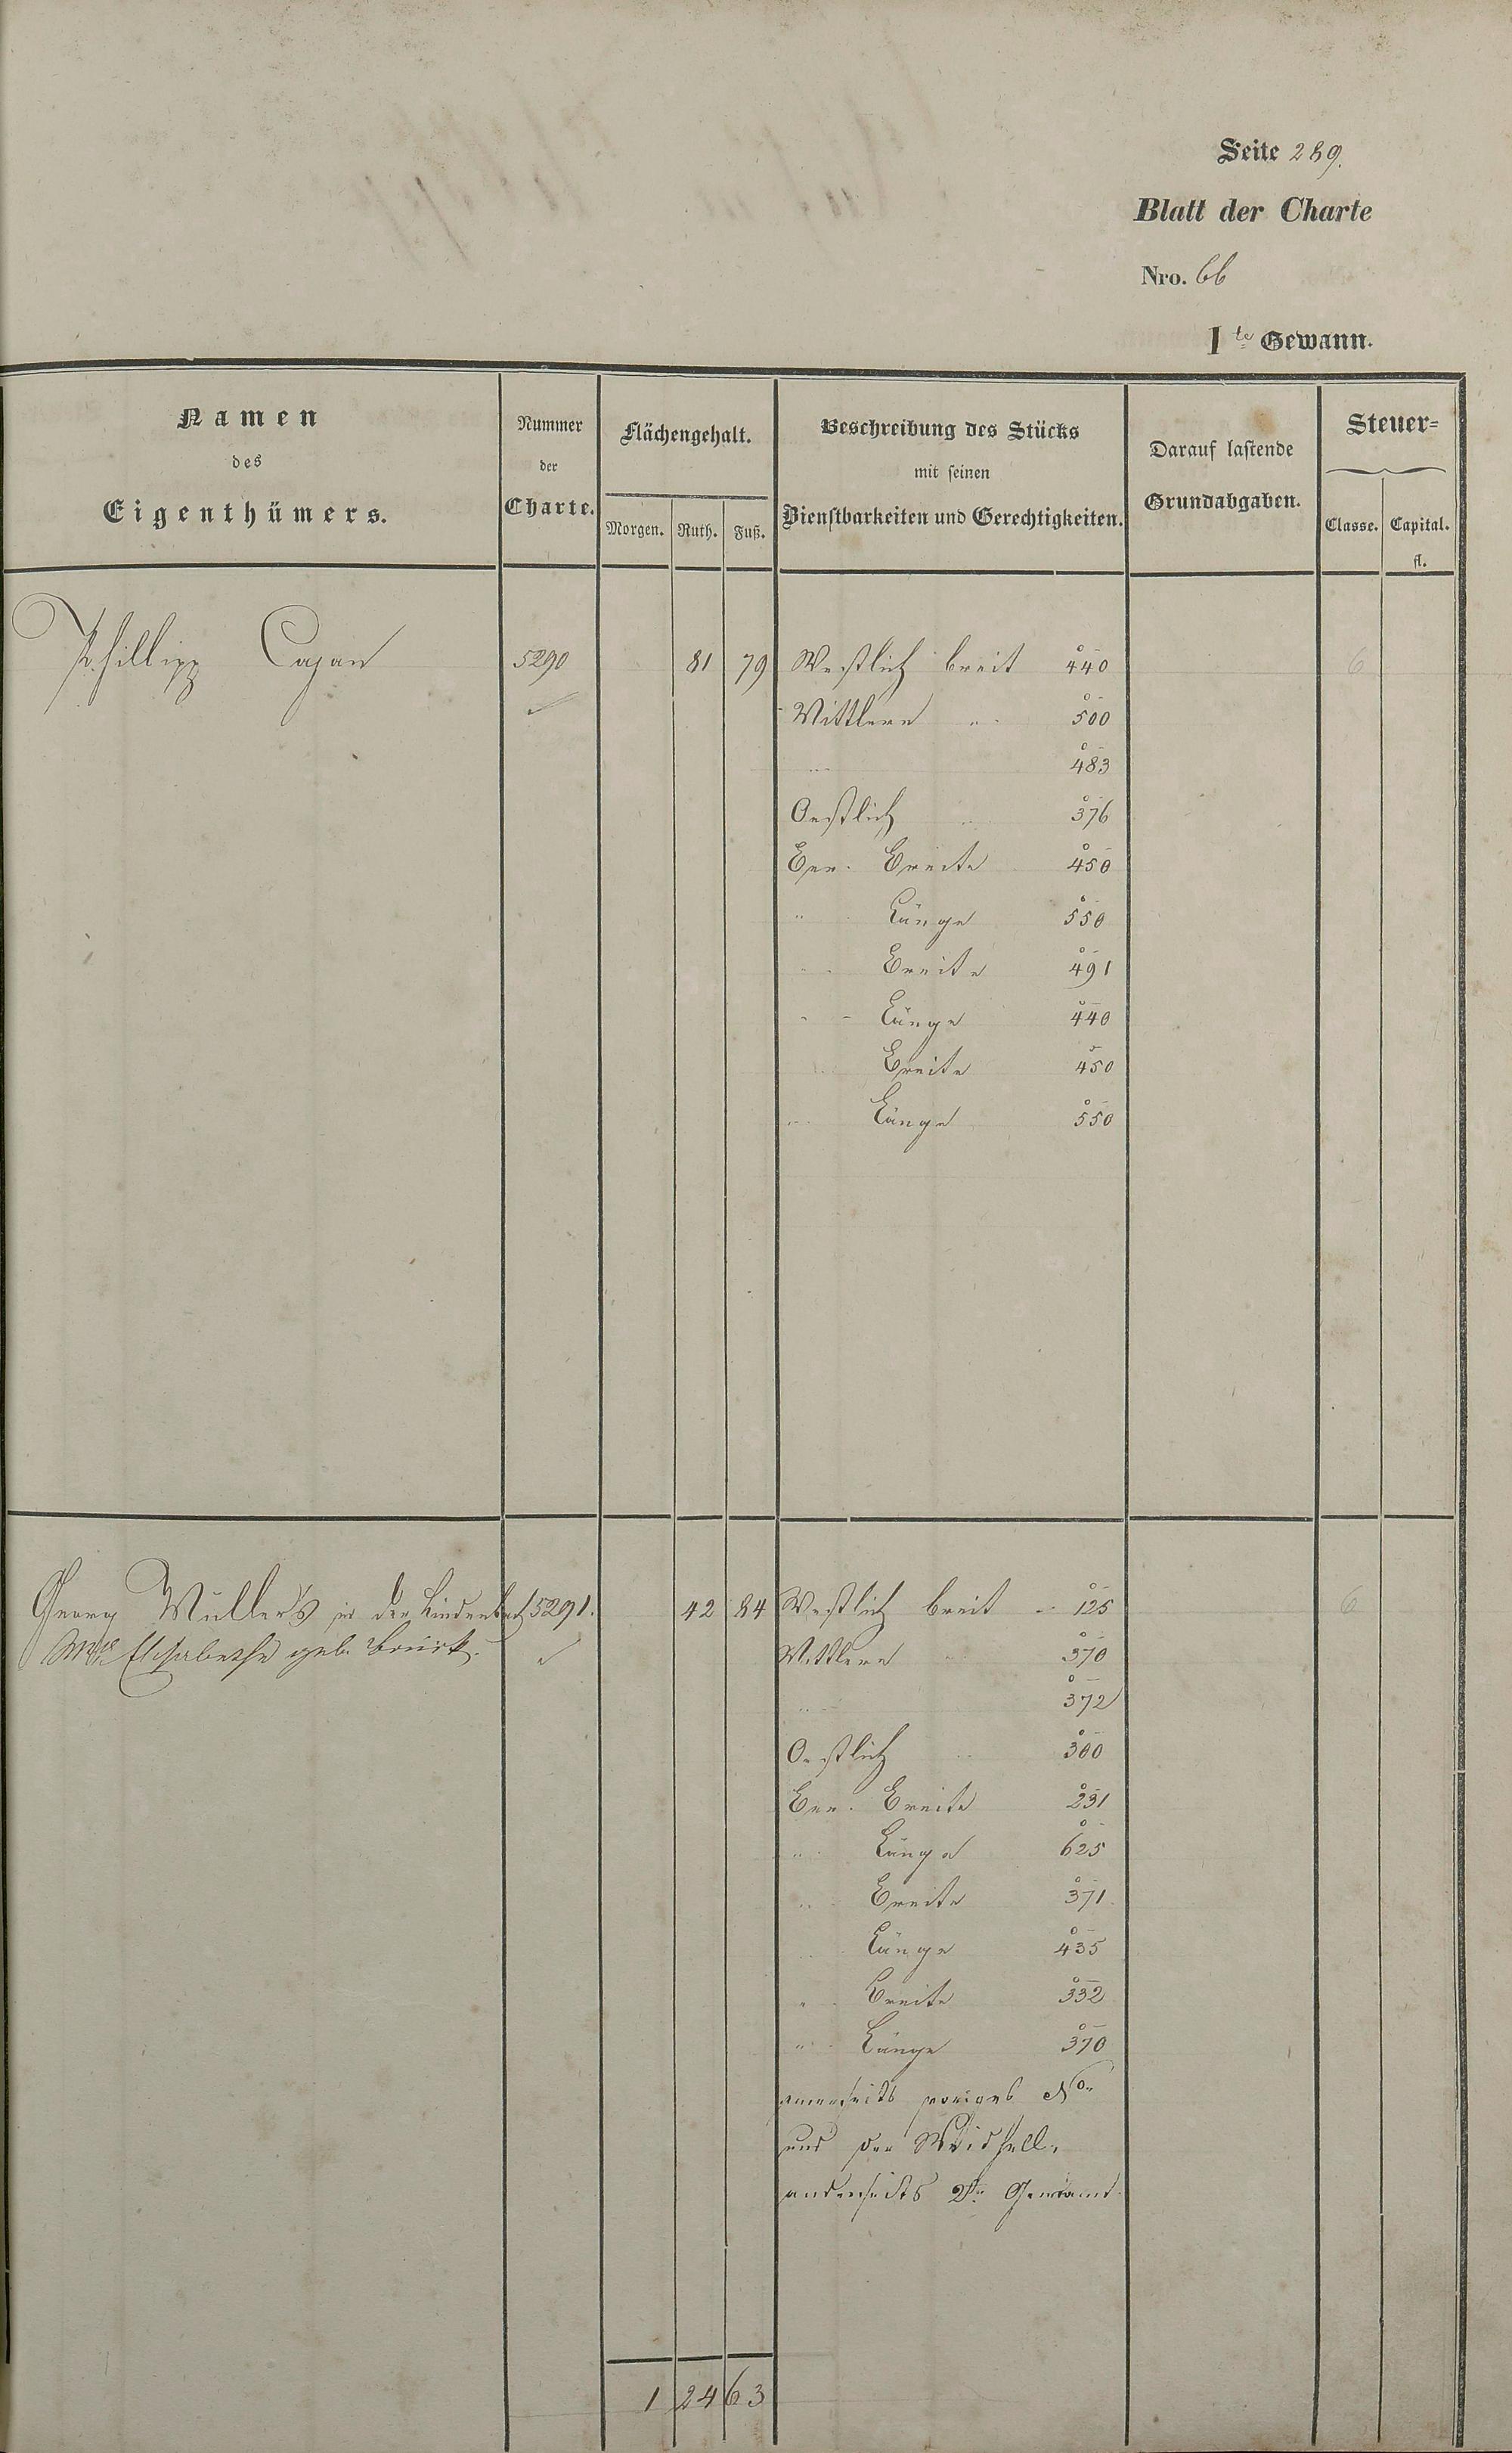 Seite 289.
Blatt der Charte
Nro. 66
1te Gewann.
Namen
des
Eigenthümers.
Nummer
der
Charte.
Flächengehalt.
Morgen. Ruth. Fuß.
Beschreibung des Stücks
mit seinen
Dienstbarkeiten und Gerechtigkeiten.
Darauf lastende
Grundabgaben.
Steuer-
Classe. Capital.
fl.
Phillipp Cajan 5290 81 79 Westlich breit 440 6
Mittlere " 500
" 483
Oestlich " 376
Ber. Breite 450
" Länge 550
" Breite 491
" Länge 440
" Breite 450
" Länge 550
Georg Müller's in der Lindenbach 5291. 42 84 Westlich breit 125 6
Wwe Elisabethe geb. Brück. Mittlere " 370
" 372
Oestlich " 300
Ber. Breite 231
" Länge 625
" Breite 371
" Länge 435
" Breite 332
" Länge 370
einerseits voriges No
und der
anderseits 2te Gewann
1 24 63